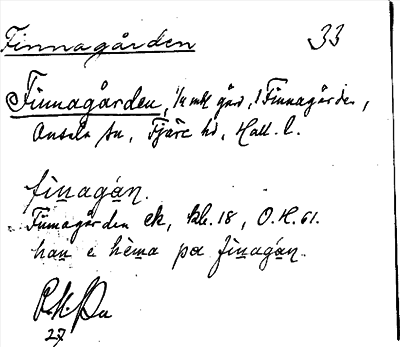 Finnagården 33
Finnagården, 1/4 mtl gård, i Finnagården,
Onsala sn, Fjäre hd, Hall. l.
finagán.
Finnagården ek, kbl. 18, O.H. 61.
han e hèma pa finagán.
27